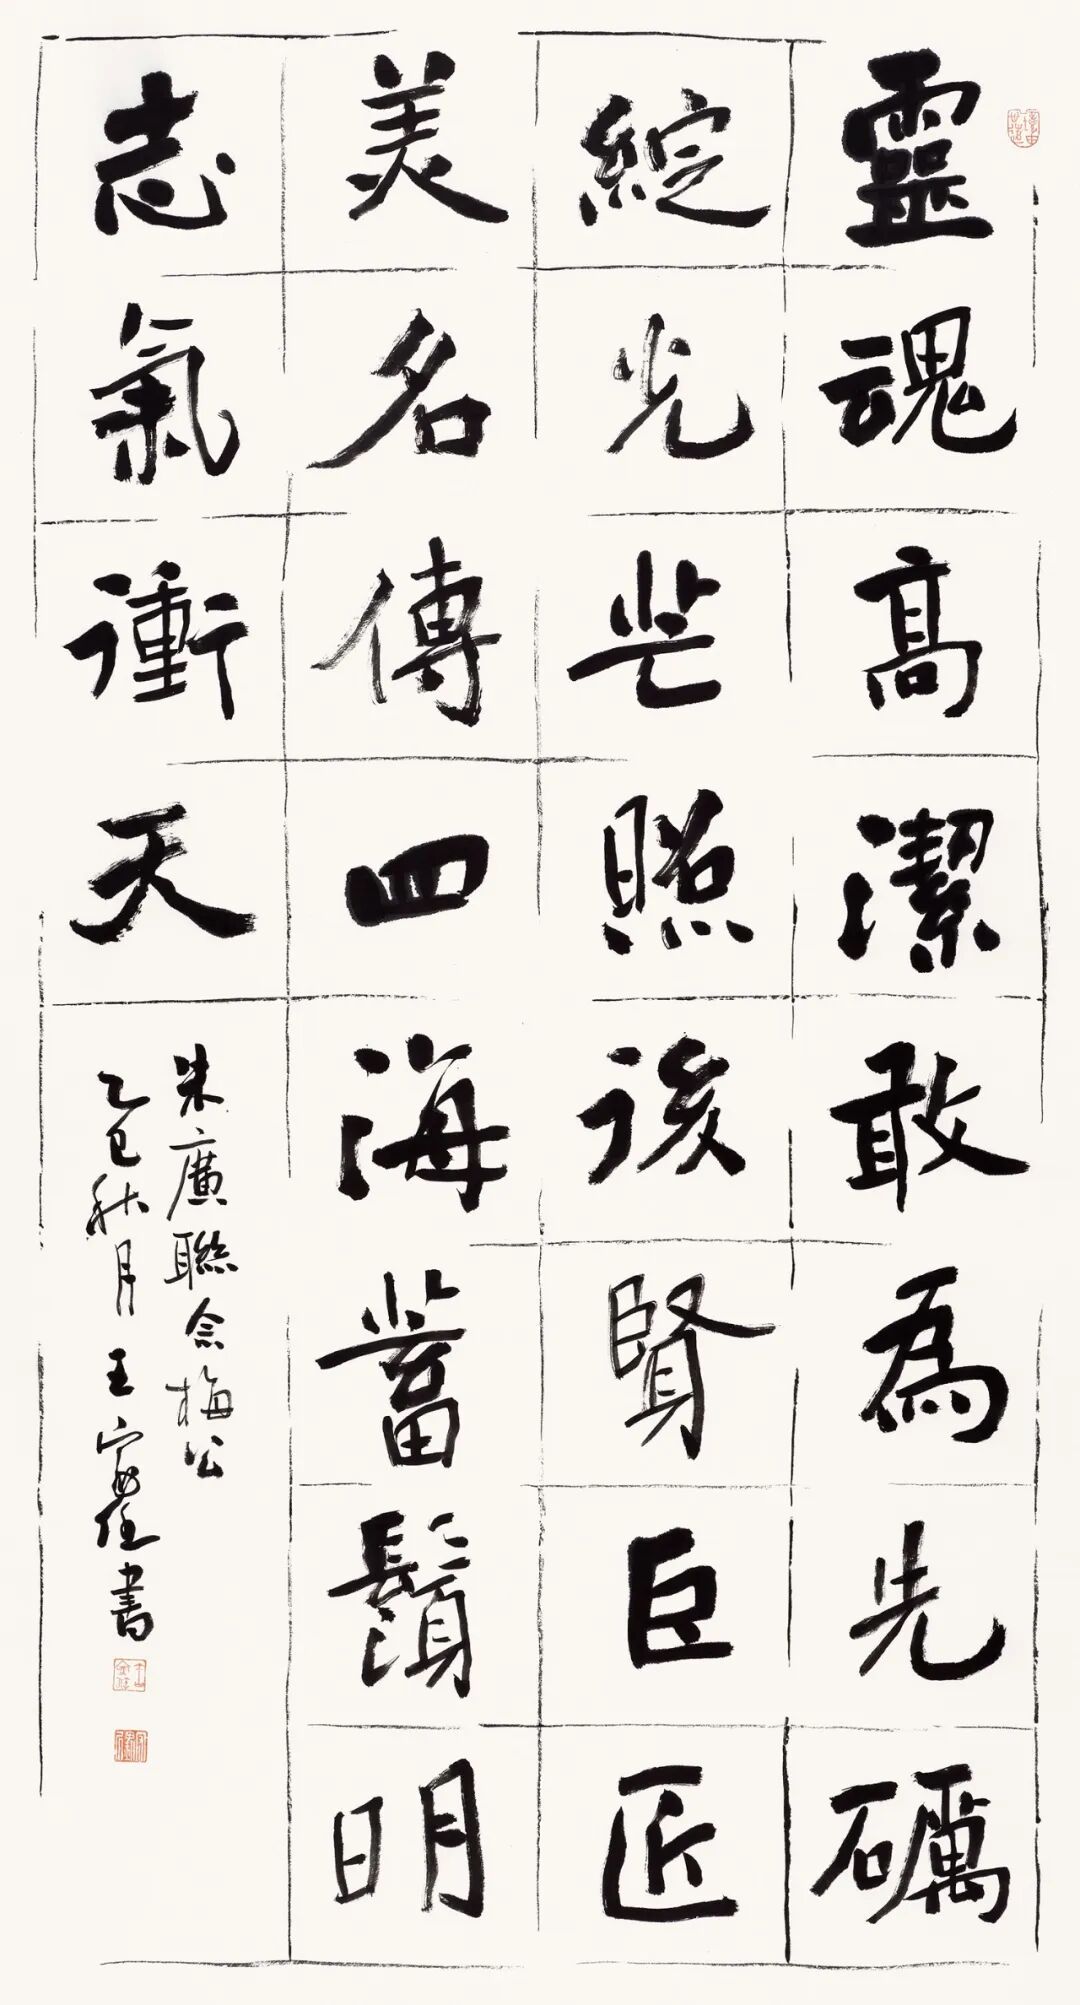 靈魂高潔敢為先礪
綻光芒照後賢巨匠
美名傳四海蓄鬚明
志氣衝天
朱廣聯念梅公
乙巳秋月王 書